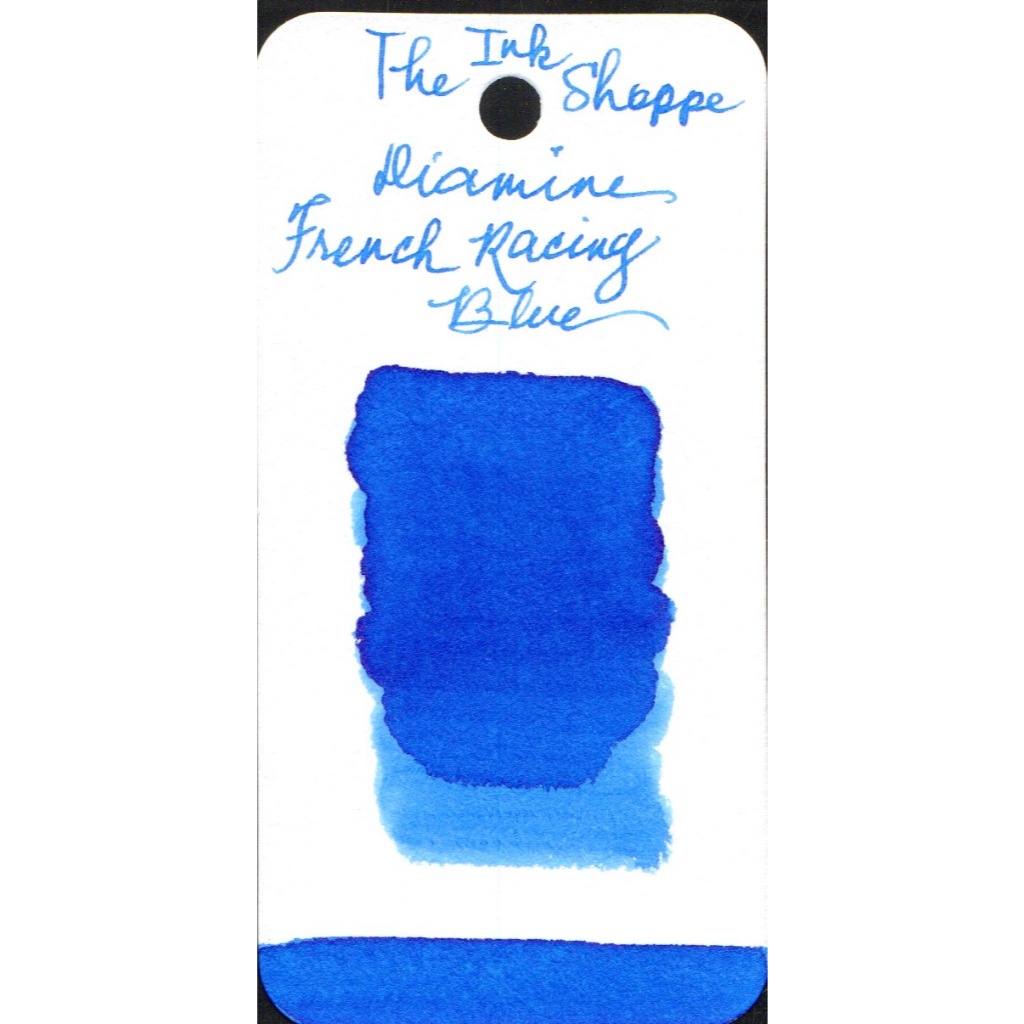 The Ink Shoppe
Diamine
French Racing
Blue